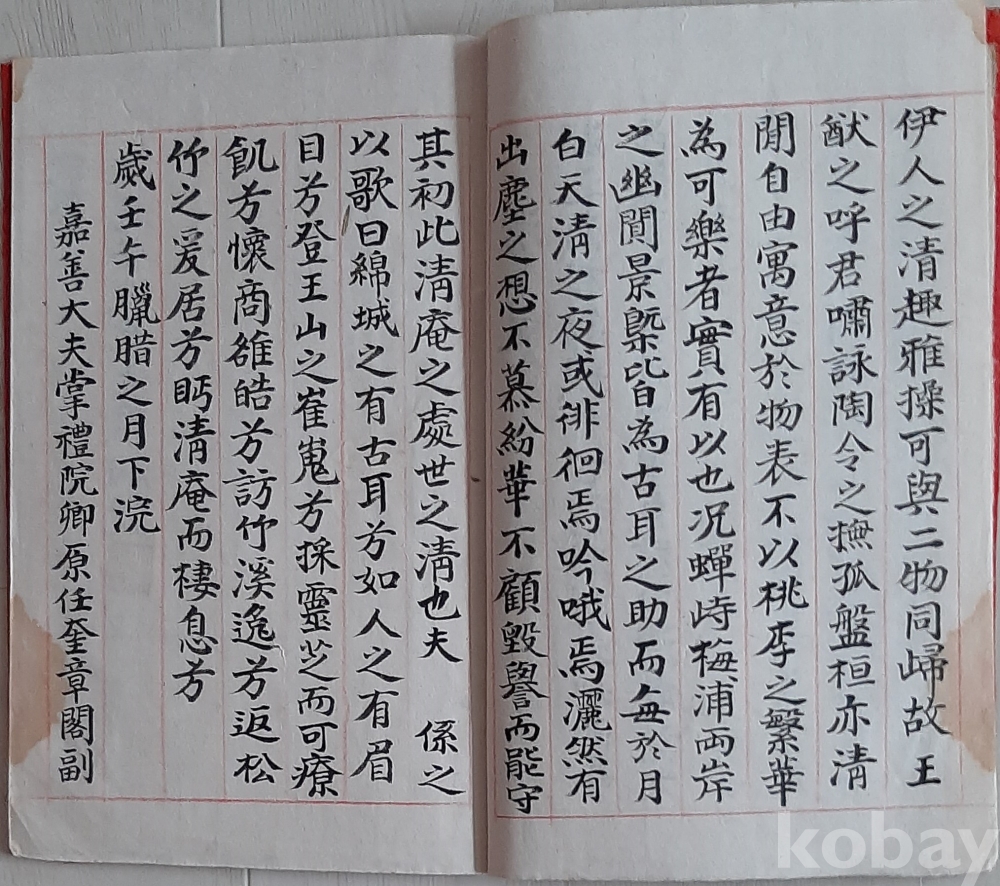 伊人之清趣雅操可與二物同歸故王
猷之呼君嘯詠陶令之撫孤盤桓亦清
閒自由寓意於物表不以桃李之繁華
為可樂者實有以也况蟬峙梅浦两岸
之幽閒景槩皆為古耳之助而每於月
白天清之夜或徘徊焉吟哦焉灑然有
出塵之想不慕紛華不顧毀譽而能守
其初此清庵之處世之清也夫 係之
以歌曰綿城之有古耳兮如人之有眉
目兮登王山之崔嵬兮採靈芝而可療
飢兮懷商雒皓兮訪竹溪逸兮返松
竹之爰居兮眄清庵而棲息兮
歲壬午臘腊之月下浣
嘉善大夫掌禮院卿原任奎章閣副
kobay